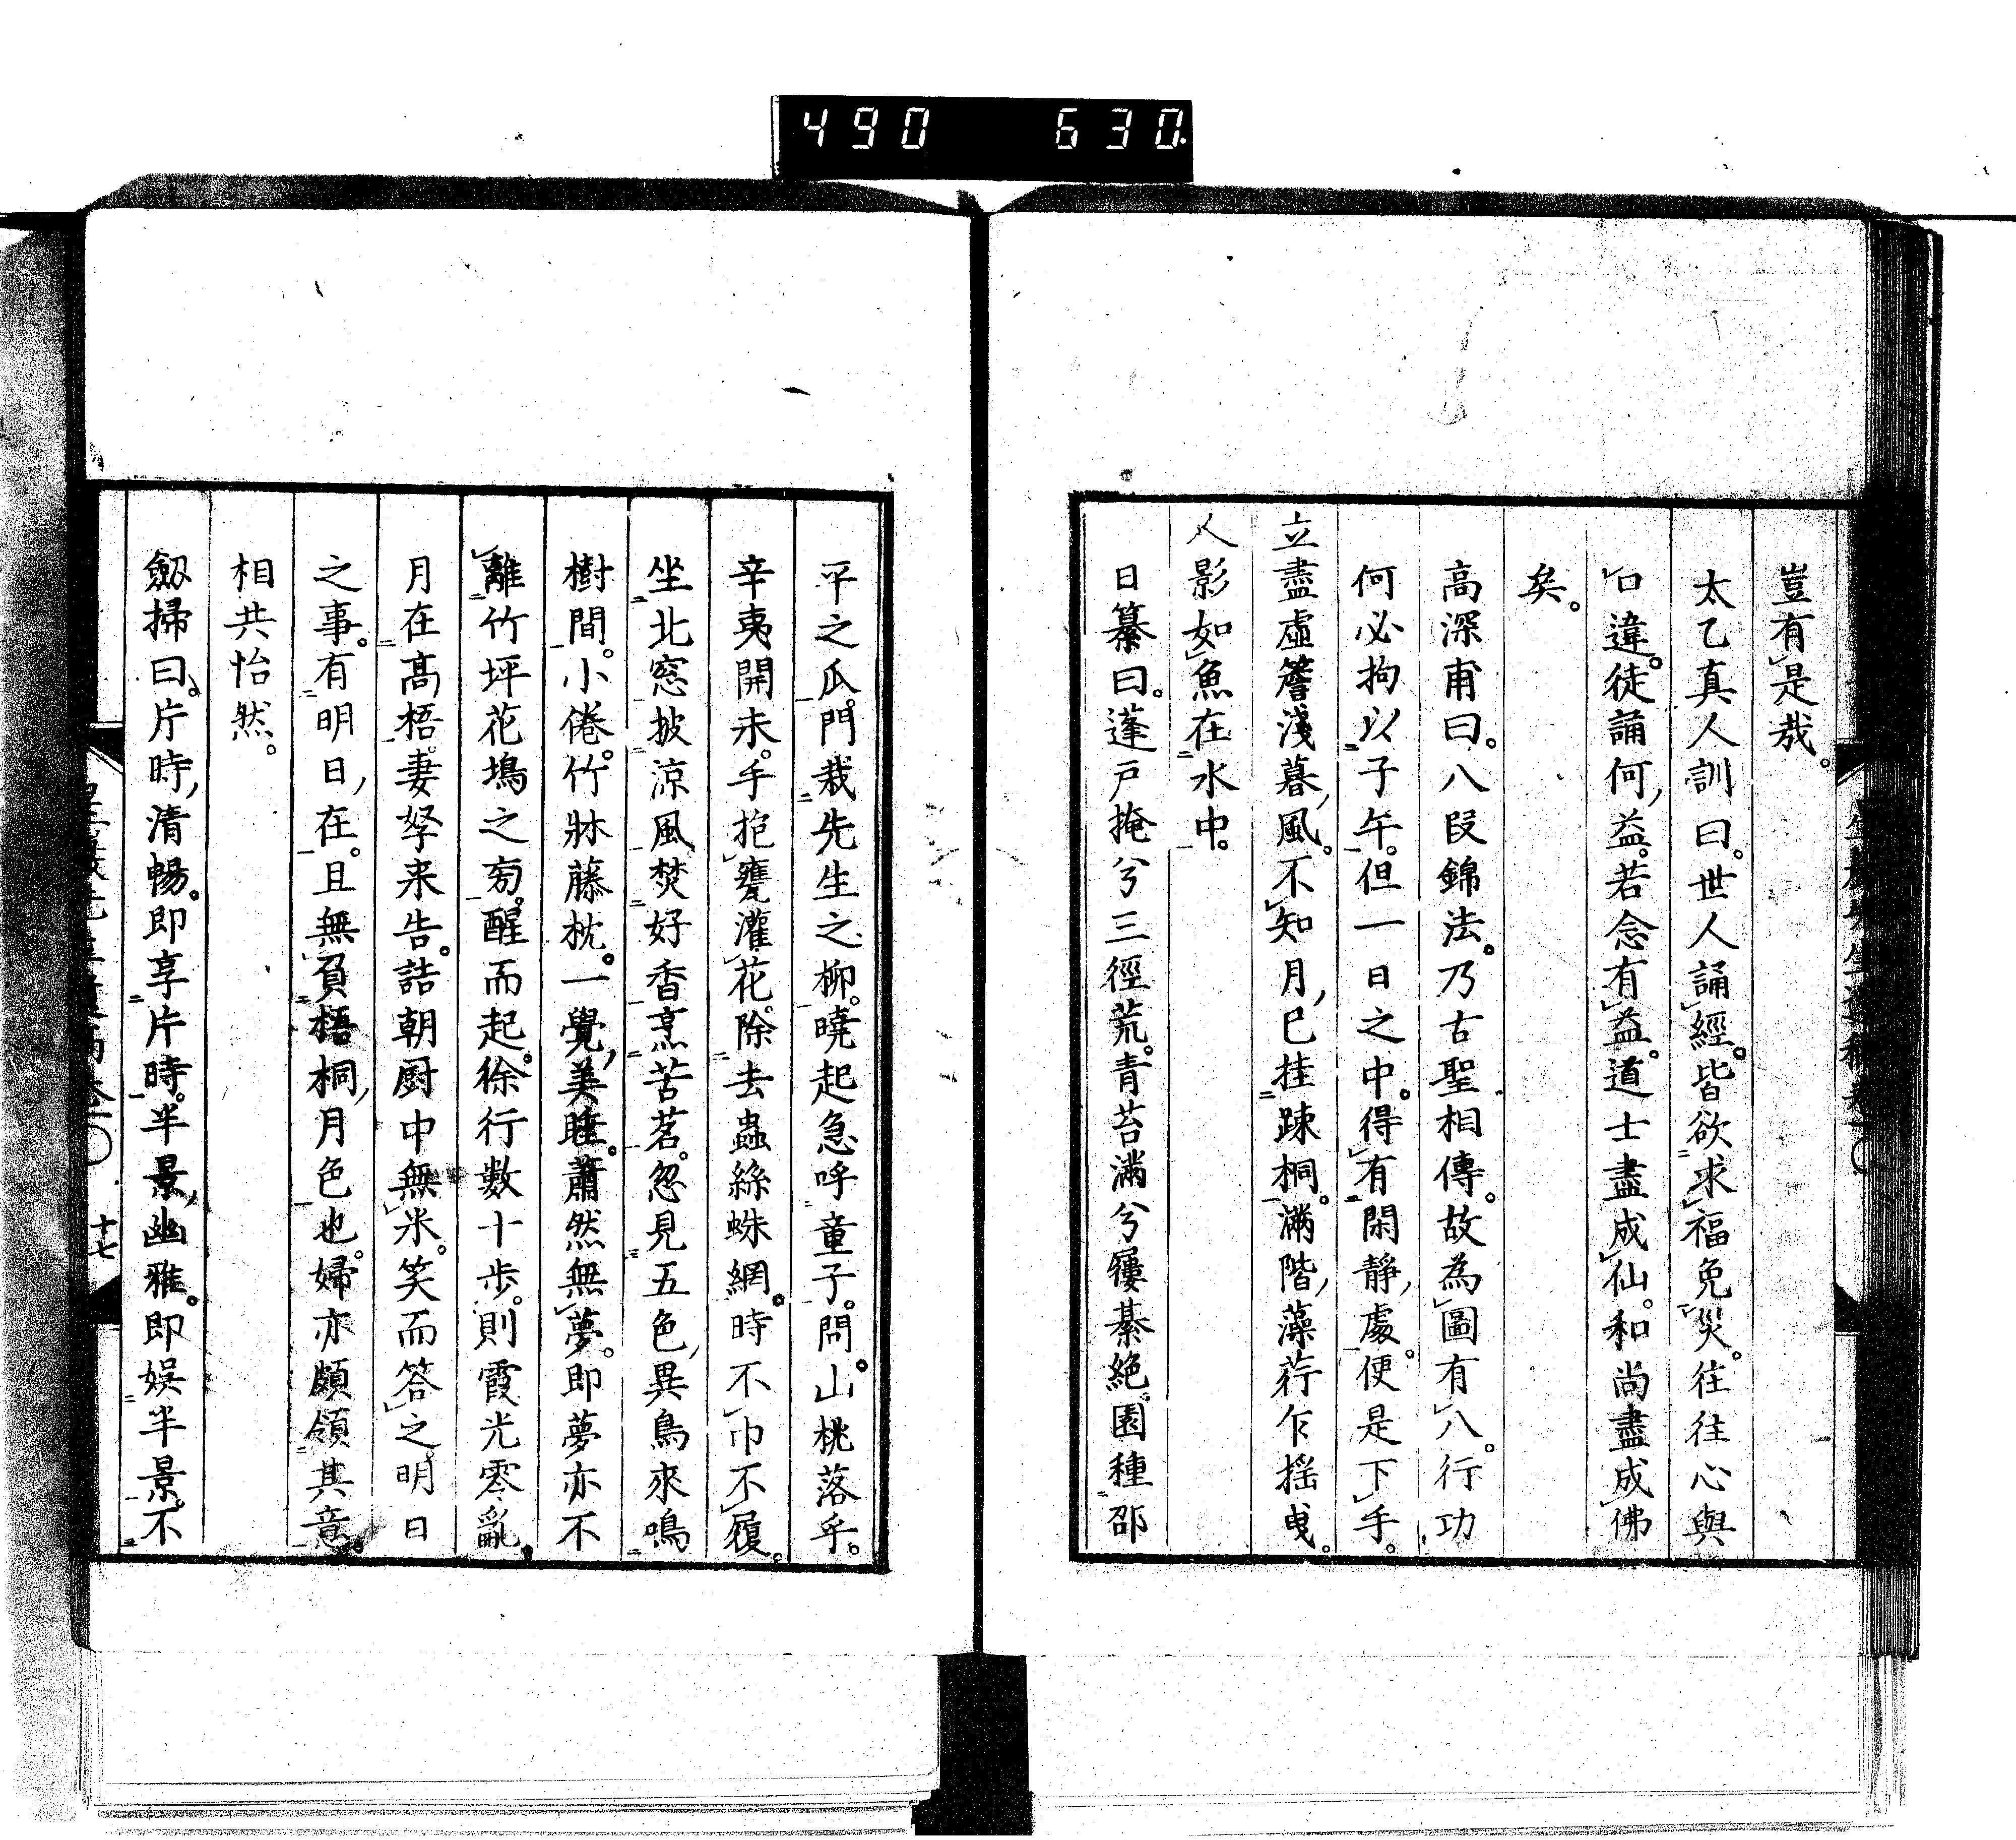 490 630
豈有是哉。
太乙真人訓曰。世人誦經。皆欲求福免災。往往心與
口違。徒誦何益。若念有益。道士盡成仙。和尚盡成佛
矣。
高深甫曰。八段錦法。乃古聖相傳。故為圖有八。行功
何必拘以子午。但一日之中。得有閑靜處。便是下手。
立盡虛簷淺暮風。不知月已挂疎桐。滿階藻荇乍搖曳。
人影如魚在水中。
日纂曰。蓬戸掩兮三徑荒。青苔滿兮屨綦絶。園種邵
平之瓜。門栽先生之柳。曉起急呼童子。問山桃落乎。
辛夷開未。手抱甕灌花。除去蟲絲蛛網。時不巾不履。
坐北窓披涼風。焚好香烹苦茗。忽見五色異鳥來鳴
樹間。小倦。竹牀藤枕。一覺美睡。蕭然無夢。即夢亦不
離竹坪花塢之旁。醒而起。徐行數十步。則霞光零亂。
月在高梧。妻孥来告。詰朝厨中無米。笑而答之。明日
之事。有明日在。且無負梧桐月色也。婦亦頗領其意。
相共怡然。
劔掃曰。片時清暢。即享片時。半景幽雅。即娯半景。不
十七